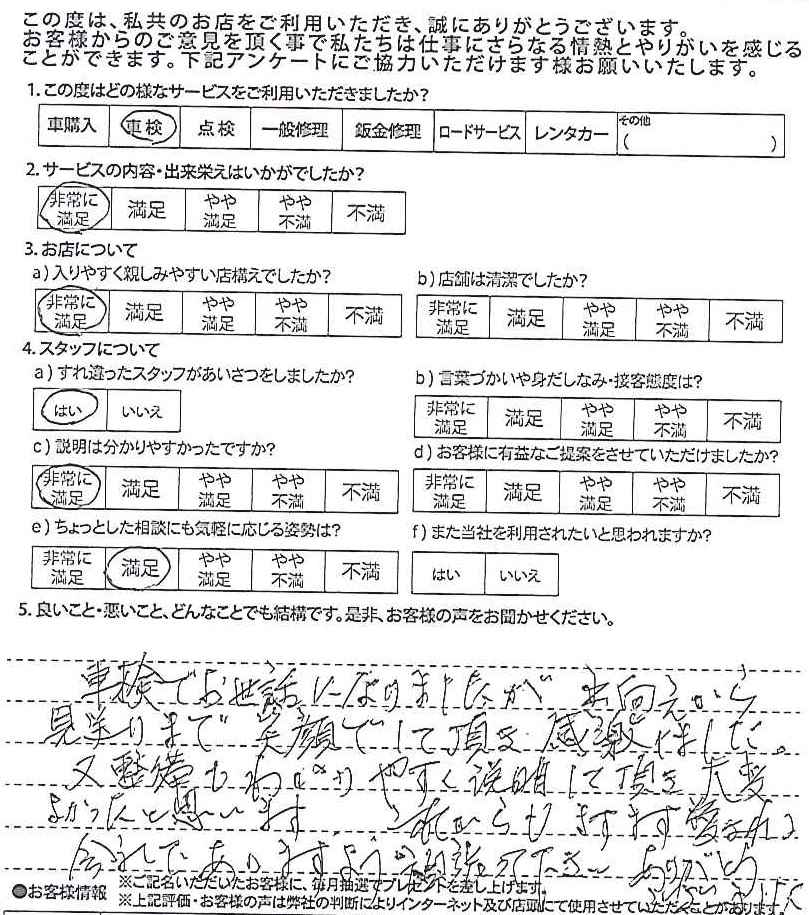 この度は、私共のお店をご利用いただき、誠にありがとうございます。
お客様からのご意見を頂く事で私たちは仕事にさらなる情熱とやりがいを感じる
ことができます。下記アンケートにご協力いただけます様お願いいたします。
1.この度はどの様なサービスをご利用いただきましたか?
車購入 車検 点検 一般修理 鈑金修理 ロードサービス レンタカー その他( )
2.サービスの内容・出来栄えはいかがでしたか?
非常に満足 満足 やや満足 やや不満 不満
3.お店について
a)入りやすく親しみやすい店構えでしたか?
非常に満足 満足 やや満足 やや不満 不満
b)店舗は清潔でしたか?
非常に満足 満足 やや満足 やや不満 不満
4.スタッフについて
a)すれ違ったスタッフがあいさつをしましたか?
はい いいえ
b)言葉づかいや身だしなみ・接客態度は?
非常に満足 満足 やや満足 やや不満 不満
c)説明は分かりやすかったですか?
非常に満足 満足 やや満足 やや不満 不満
d)お客様に有益なご提案をさせていただけましたか?
非常に満足 満足 やや満足 やや不満 不満
e)ちょっとした相談にも気軽に応じる姿勢は?
非常に満足 満足 やや満足 やや不満 不満
f)また当社を利用されたいと思われますか?
はい いいえ
5.良いこと・悪いこと、どんなことでも結構です。是非、お客様の声をお聞かせください。
車検でお世話になりましたが お向えから
見送りまで 笑顔でして頂き 感激しました。
又整備もわかりやすく説明して頂き 大変
よかったと思います これからもますます愛される
会社でありますよう 頑張って下さい ありがとう
ございました
●お客様情報 ※ご記名いただいたお客様に、毎月抽選でプレゼントを差し上げます。
※上記評価・お客様の声は弊社の判断によりインターネット及び店頭にて使用させていただくことがあります。